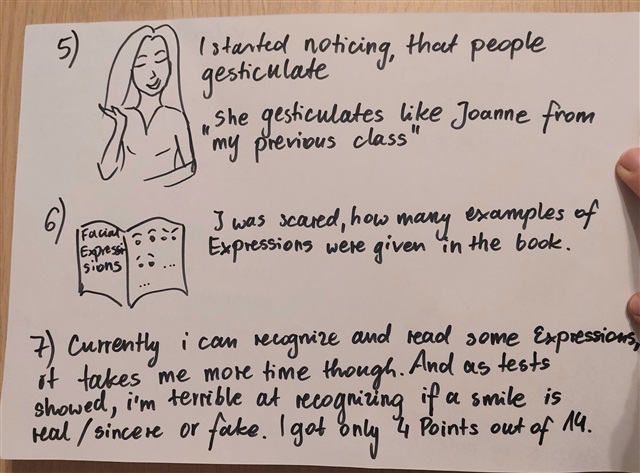 5)
I started noticing, that people
gesticulate
"She gesticulates like Joanne from
my previous class"
6)
Facial
Expressi
sions
...
...
I was scared, how many examples of
Expressions were given in the book.
7) Currently i can recognize and read some Expressions,
it takes me more time though. And as tests
showed, i'm terrible at recognizing if a smile is
real/sincere or fake. I got only 4 Points out of 14.